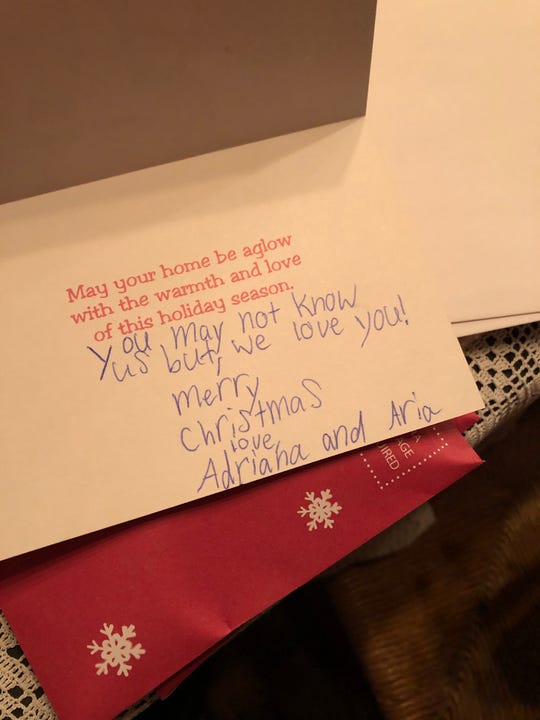 May your home be aglow
with the warmth and love
of this holiday season.
You may not know
us but, we love you!
merry
christmas
love,
Adriana and Aria